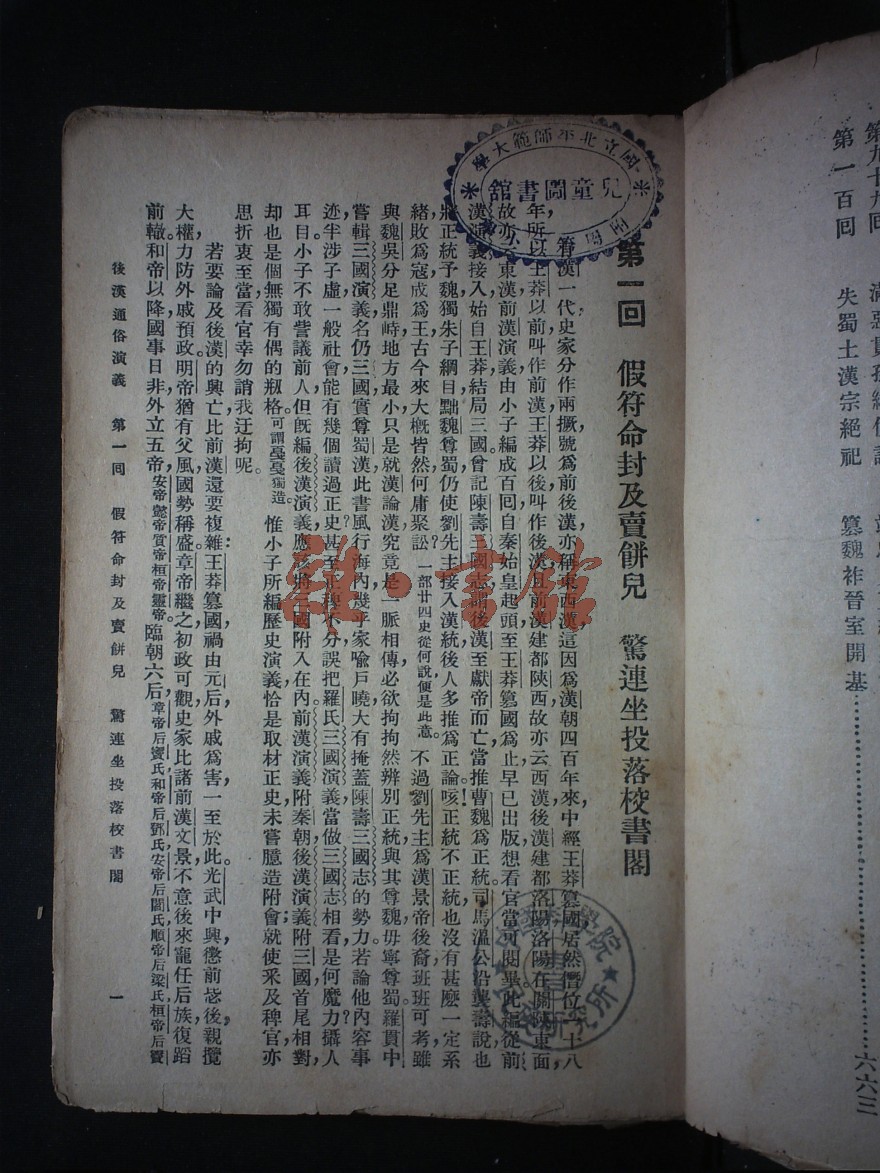 第一百回　失蜀土漢宗絕祀　篡魏祚晉室開基⋯⋯⋯⋯⋯⋯六六三
國立北平師範大學
兒童圖書館
第一回　假符命封及賣餅兒　驚連坐投落校書閣
漢一代史家分作兩橛，號爲前後漢，亦稱東西漢，這因爲漢朝四百年來，中經王莽篡國，居然僭位一十八
年，所以王莽以前，叫作前漢，王莽以後，叫作後漢，且前漢建都陝西，故亦云西漢，後漢建都洛陽，洛陽在關陝東面，
故亦云東漢。前漢演義由小子編成百回，自秦始皇起頭，至王莽篡國爲止，早已出版，想看官當可閱畢。此編從前
漢演義接入，始自王莽，結局三國。曾記陳壽三國志，謂後漢至獻帝而亡，當推曹魏爲正統，司馬溫公沿襲壽說，也
將正統予魏，獨朱子綱目，黜魏尊蜀，仍使劉先主接入漢統，後人多推爲正論。咳！正統不正統，也沒有甚麽一定系
緒，敗爲寇，成爲王，古今來大概皆然，何庸聚訟？一部廿四史從何說便是此意。不過劉先主爲漢景帝後裔，班班可考，雖
與魏吳分足鼎峙，地方最小，只是就漢論漢，究竟是一脈相傳，必欲拘拘然辨別正統，與其尊魏，毋寧尊蜀。羅貫中
嘗輯三國演義，名仍三國，實尊蜀漢，此書風行海內，幾乎家喩戶曉，大有掩蓋陳壽三國志的勢力。若論他內容事
迹，半涉子虛，一般社會，能有幾個讀過正史？甚至正稗不分，誤把羅氏三國演義，當做三國志相看，是何魔力攝人
耳目。小子不敢訾議前人，但旣編後漢演義，應該將三國附入在內，前漢演義附秦朝，後漢演義附三國，首尾相對，
却也是個無獨有偶的瓶格。可謂戛戛獨造。惟小子所編歷史演義，恰是取材正史，未嘗臆造附會；就使釆及稗官，亦
思折衷至當，看官幸勿誚我迂拘呢。
若要論及後漢的興亡，比前漢還要複雜：王莽篡國，禍由元后，外戚爲害，一至於此。光武中興，懲前毖後，親攬
大權，力防外戚預政，明帝猶有父風，國勢稱盛，章帝繼之，初政可觀，史家比諸前漢文景。不意後來寵任后族，復蹈
前轍。和帝以降，國事日非，外立五帝，安帝懿帝質帝桓帝靈帝。臨朝六后，章帝后竇氏和帝后鄧氏安帝后閻氏順帝后梁氏桓帝后竇
後漢通俗演義　第一回　假符命封及賣餅兒　驚連坐投落校書閣　　一